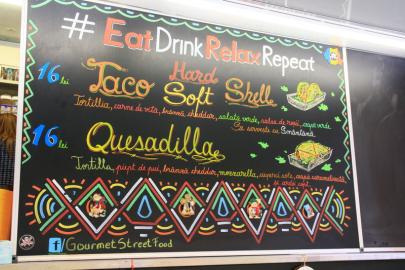 #EatDrinkRelaxRepeat
16 lei
Taco Hard Soft Shell
Tortilla, carne de vită, brânză cheddar, salată verde, salsa de roșii, ceapă verde
Se servește cu Smântână
16 lei
Quesadilla
Tortilla, piept de pui, brânză cheddar, mozzarella, ciuperci sote, ceapă caramelizată
și ardei copt
f/GourmetStreetFood